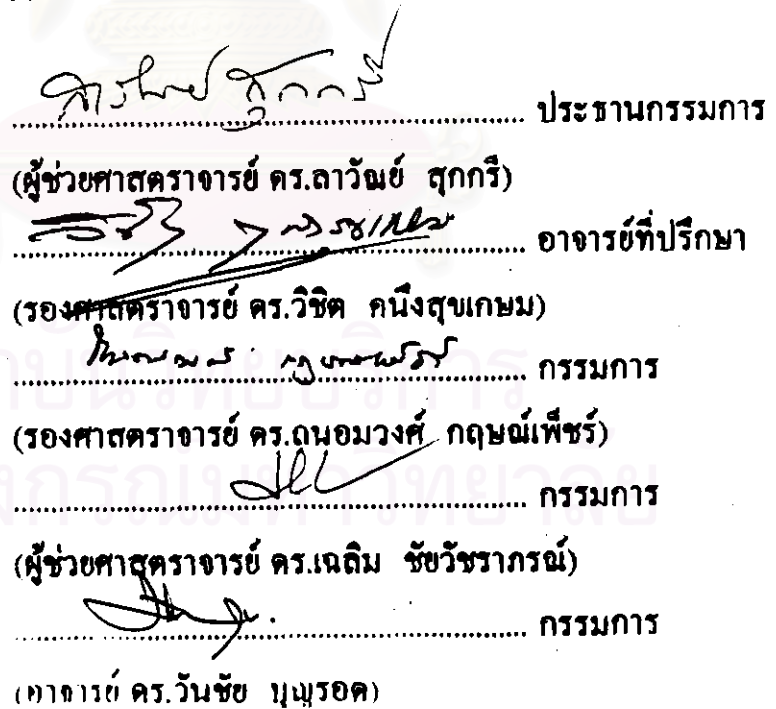 ลาวัณย์ สุกกรี
ประธานกรรมการ
(ผู้ช่วยศาสตราจารย์ ดร.ลาวัณย์ สุกกรี)
อาจารย์ที่ปรึกษา
(รองศาสตราจารย์ ดร.วิชิต คนึงสุขเกษม)
กรรมการ
(รองศาสตราจารย์ ดร.ถนอมวงศ์ กฤษณ์เพ็ชร์)
กรรมการ
(ผู้ช่วยศาสตราจารย์ ดร.เฉลิม ชัยวัชราภรณ์)
กรรมการ
(อาจารย์ ดร.วันชัย บุญรอด)